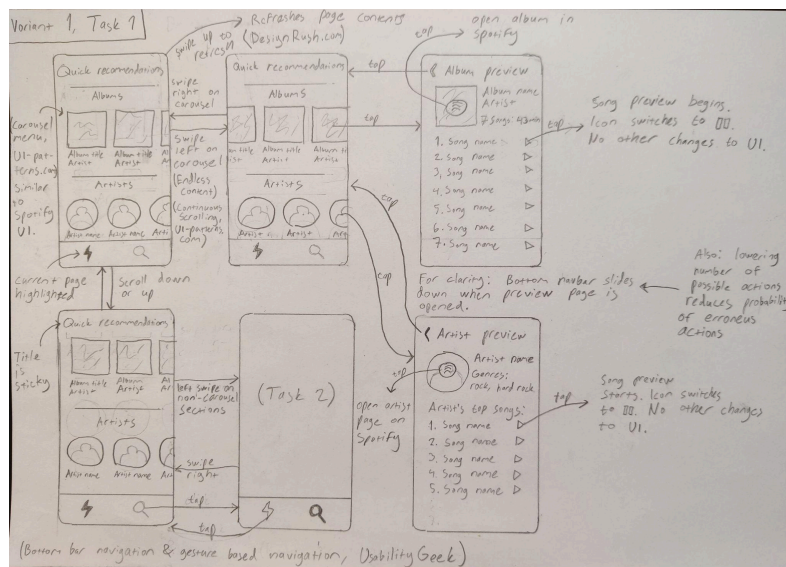 Variant 1, Task 1
swipe up to
refresh
Refreshes page contents
(DesignRush.com)
open album in
Spotify
tap
Quick recommendations
Albums
Album title
Artist
Album title
Artist
Artists
Artist name
Artist name
Arti
(Carousel
menu,
UI-pat-
terns.com)
Similar
to
Spotify
UI.
swipe
right on
carousel
Swipe
left on
carousel
(Endless
Content)
(Continuous
Scrolling,
UI-patterns.
com)
Quick recommendations
Albums
Album title
Artist
Artists
Artist
tap
tap
Album preview
Album name
Artist
7 Songs: 43min
1. Song name
2. Song name
3. Song name
4. Song name
5. Song name
6. Song name
7. Song name
tap
Song preview begins.
Icon switches to
No other changes to UI.
tap
tap
Current page
highlighted
Scroll down
or up
For clarity: Bottom navbar slides
down when preview page is
opened.
Also: lowering
number of
possible actions
reduces probability
of erroneus
actions
Quick recommendations
Album title
Artist
Album
Artist
Artists
Artist name
Artist name
Title
is
sticky
left swipe on
non-carousel
sections
swipe
right
tap
tap
(Task 2)
Artist preview
Artist name
Genres:
rock, hard rock
tap
open artist
page on
Spotify
Artist's top songs:
1. Song name
2. Song name
3. Song name
4. Song name
5. Song name
tap
Song preview
starts. Icon switches
to
. No other changes
to UI.
(Bottom bar navigation & gesture based navigation, UsabilityGeek)